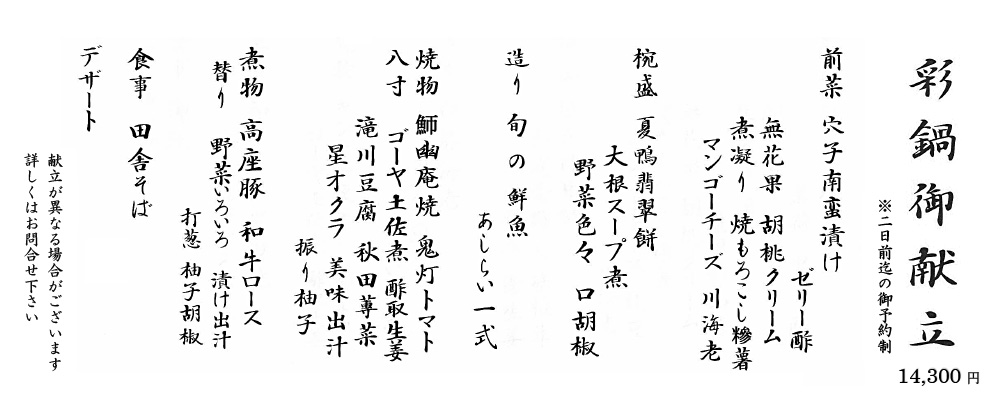 彩鍋御献立
※二日前迄の御予約制
14,300 円
前菜 穴子南蛮漬け
ゼリー酢
無花果 胡桃クリーム
煮凝り 焼もろこし糝薯
マンゴーチーズ 川海老
椀盛 夏鴨翡翠餅
大根スープ煮
野菜色々 口胡椒
造り 旬の鮮魚
あしらい一式
焼物 鰤幽庵焼 鬼灯トマト
八寸 ゴーヤ土佐煮 酢取生姜
滝川豆腐 秋田蓴菜
星オクラ 美味出汁
振り柚子
煮物 高座豚 和牛ロース
替り 野菜いろいろ 漬け出汁
打葱 柚子胡椒
食事 田舎そば
デザート
献立が異なる場合がございます
詳しくはお問合せ下さい